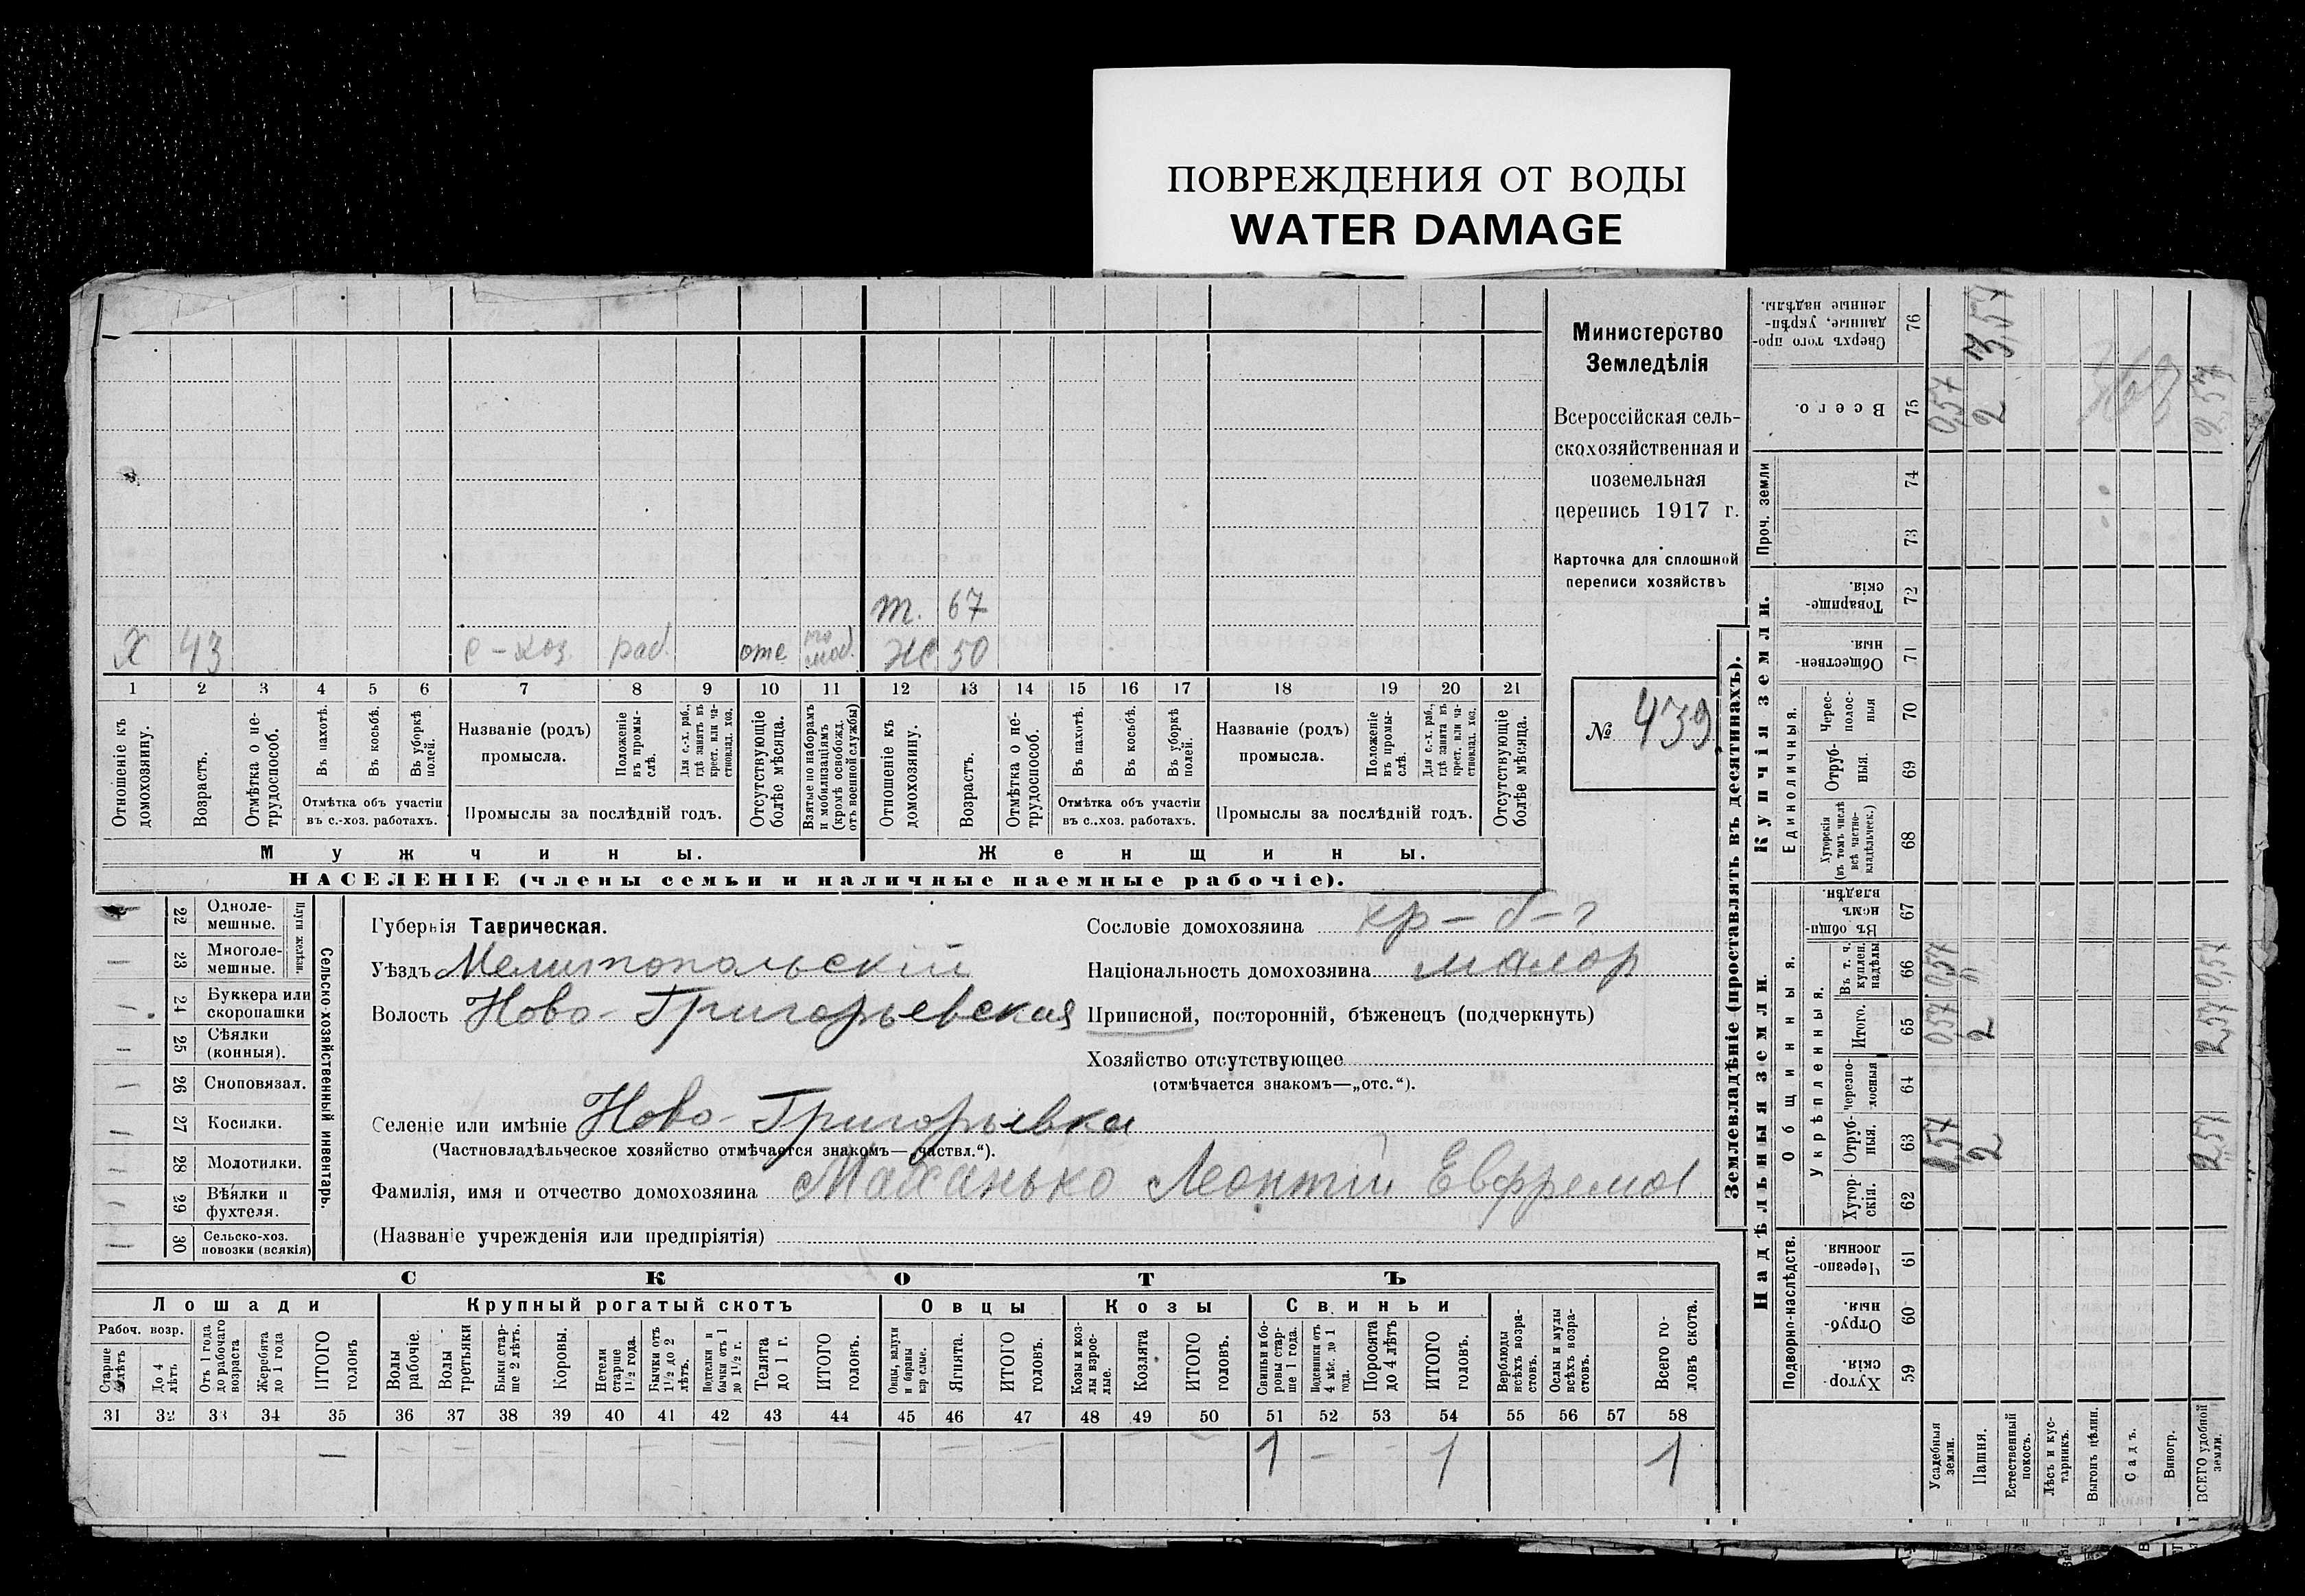 ПОВРЕЖДЕНИЯ ОТ ВОДЫ
WATER DAMAGE
т. 67
Х 43 с-хоз. раб. отс по моб. Ж 50
1 2 3 4 5 6 7 8 9 10 11 12 13 14 15 16 17 18 19 20 21
Отношеніе къ домохозяину.
Возрастъ.
Отмѣтка о не-трудоспособ.
Въ пахотѣ.
Въ косьбѣ.
Въ уборкѣ полей.
Отмѣтка объ участіи
въ с.-хоз. работахъ.
Названіе (родъ)
промысла.
Положеніе въ промы-слѣ.
Для с.-х. раб., гдѣ занятъ въ крест. или ча-стновлад. хоз.
Промыслы за послѣдній годъ.
Отсутствующіе болѣе мѣсяца.
Взятые по наборамъ и мобилизаціямъ (кромѣ освобожд. отъ военной службы)
Отношеніе къ домохозяину.
Возрастъ.
Отмѣтка о не-трудоспособ.
Въ пахотѣ.
Въ косьбѣ.
Въ уборкѣ полей.
Отмѣтка объ участіи
въ с.-хоз. работахъ.
Названіе (родъ)
промысла.
Положеніе въ промы-слѣ.
Для с.-х. раб., гдѣ занята въ крест. или ча-стновлад. хоз.
Промыслы за послѣдній годъ.
Отсутствующіе болѣе мѣсяца.
Мужчины. Женщины.
НАСЕЛЕНІЕ (члены семьи и наличные наемные рабочіе).
Министерство
Земледѣлія
Всероссійская сель-
скохозяйственная и
поземельная
перепись 1917 г.
Карточка для сплошной
переписи хозяйствъ
№ 439
22 Одноле-мешные.
23 Многоле-мешные.
Плуги желѣзн.
24 Буккера или скоропашки
25 Сѣялки (конныя).
26 Сноповязал.
27 Косилки.
28 Молотилки.
29 Вѣялки и фухтеля.
30 Сельско-хоз. повозки (всякія)
Сельско-хозяйственный инвентарь.
Губернія Таврическая.
Уѣздъ Мелитопольскій
Волость Ново-Григорьевская
Селеніе или имѣніе Ново-Григорьевка
(Частновладѣльческое хозяйство отмѣчается знакомъ—„частвл.“).
Фамилія, имя и отчество домохозяина Маханько Леонтій Евфремов
(Названіе учрежденія или предпріятія)
Сословіе домохозяина кр-б-г
Національность домохозяина малор
Приписной, посторонній, бѣженецъ (подчеркнуть)
Хозяйство отсутствующее
(отмѣчается знакомъ—„отс.“).
СКОТЪ
Лошади Крупный рогатый скотъ Овцы Козы Свиньи
Рабоч. возр.
Старше 4 лѣтъ
До 4 лѣтъ
Отъ 1 года до рабочаго возраста
Жеребята до 1 года
ИТОГО головъ
Волы рабочіе.
Волы третьяки
Быки стар-ше 2 лѣтъ.
Коровы.
Нетели старше 1½ года.
Бычки отъ 1½ до 2 лѣтъ.
Подтелки и бычки отъ 1 до 1½ г.
Телята до 1 г.
ИТОГО головъ.
Овцы, валухи и бараны взрослые.
Ягнята.
ИТОГО головъ.
Козы и коз-лы взрос-лые.
Козлята
ИТОГО головъ.
Свиньи и бо-ровы стар-ше 1 года.
Подсвинки отъ 4 мѣс. до 1 года.
Поросята до 4 лѣтъ
ИТОГО головъ.
Верблюды всѣхъ возра-стовъ.
Ослы и мулы всѣхъ возра-стовъ.
Всего го-ловъ скота.
31 32 33 34 35 36 37 38 39 40 41 42 43 44 45 46 47 48 49 50 51 52 53 54 55 56 57 58
— — — — — — — — — — — — — — — — 1 — - 1 1
Землевладѣніе (проставлять въ десятинахъ).
Надѣльныя земли. Купчія земли. Проч. земли
Подворно-наслѣдств. Общинныя. Единоличныя.
Укрѣпленныя.
59 Хутор-скія.
60 Отруб-ныя.
61 Черезпо-лосныя
62 Хутор-скія.
63 Отруб-ныя.
64 Черезпо-лосныя
65 Итого.
66 Въ т. ч. куплен. надѣлы
67 Въ общи-номъ владѣн.
68 Хуторскія (въ томъ числѣ всѣ частно-владѣльческ.)
69 Отруб-ныя.
70 Черес-полос-ныя
71 Обществен-ныя
72 Товарище-скія.
73
74
75 Всего.
76 Сверхъ того про-данные, укрѣп-ленные надѣлы.
Усадебныя земли. 0,57 0,57 0,57
Пашня. 2 2 " 2 3,57
Естественный покосъ.
Лѣсъ и кус-тарникъ.
Выгонъ цѣлин.
Садъ.
Виногр.
ВСЕГО удобной земли. 2,57 2,57 0,57 2,57